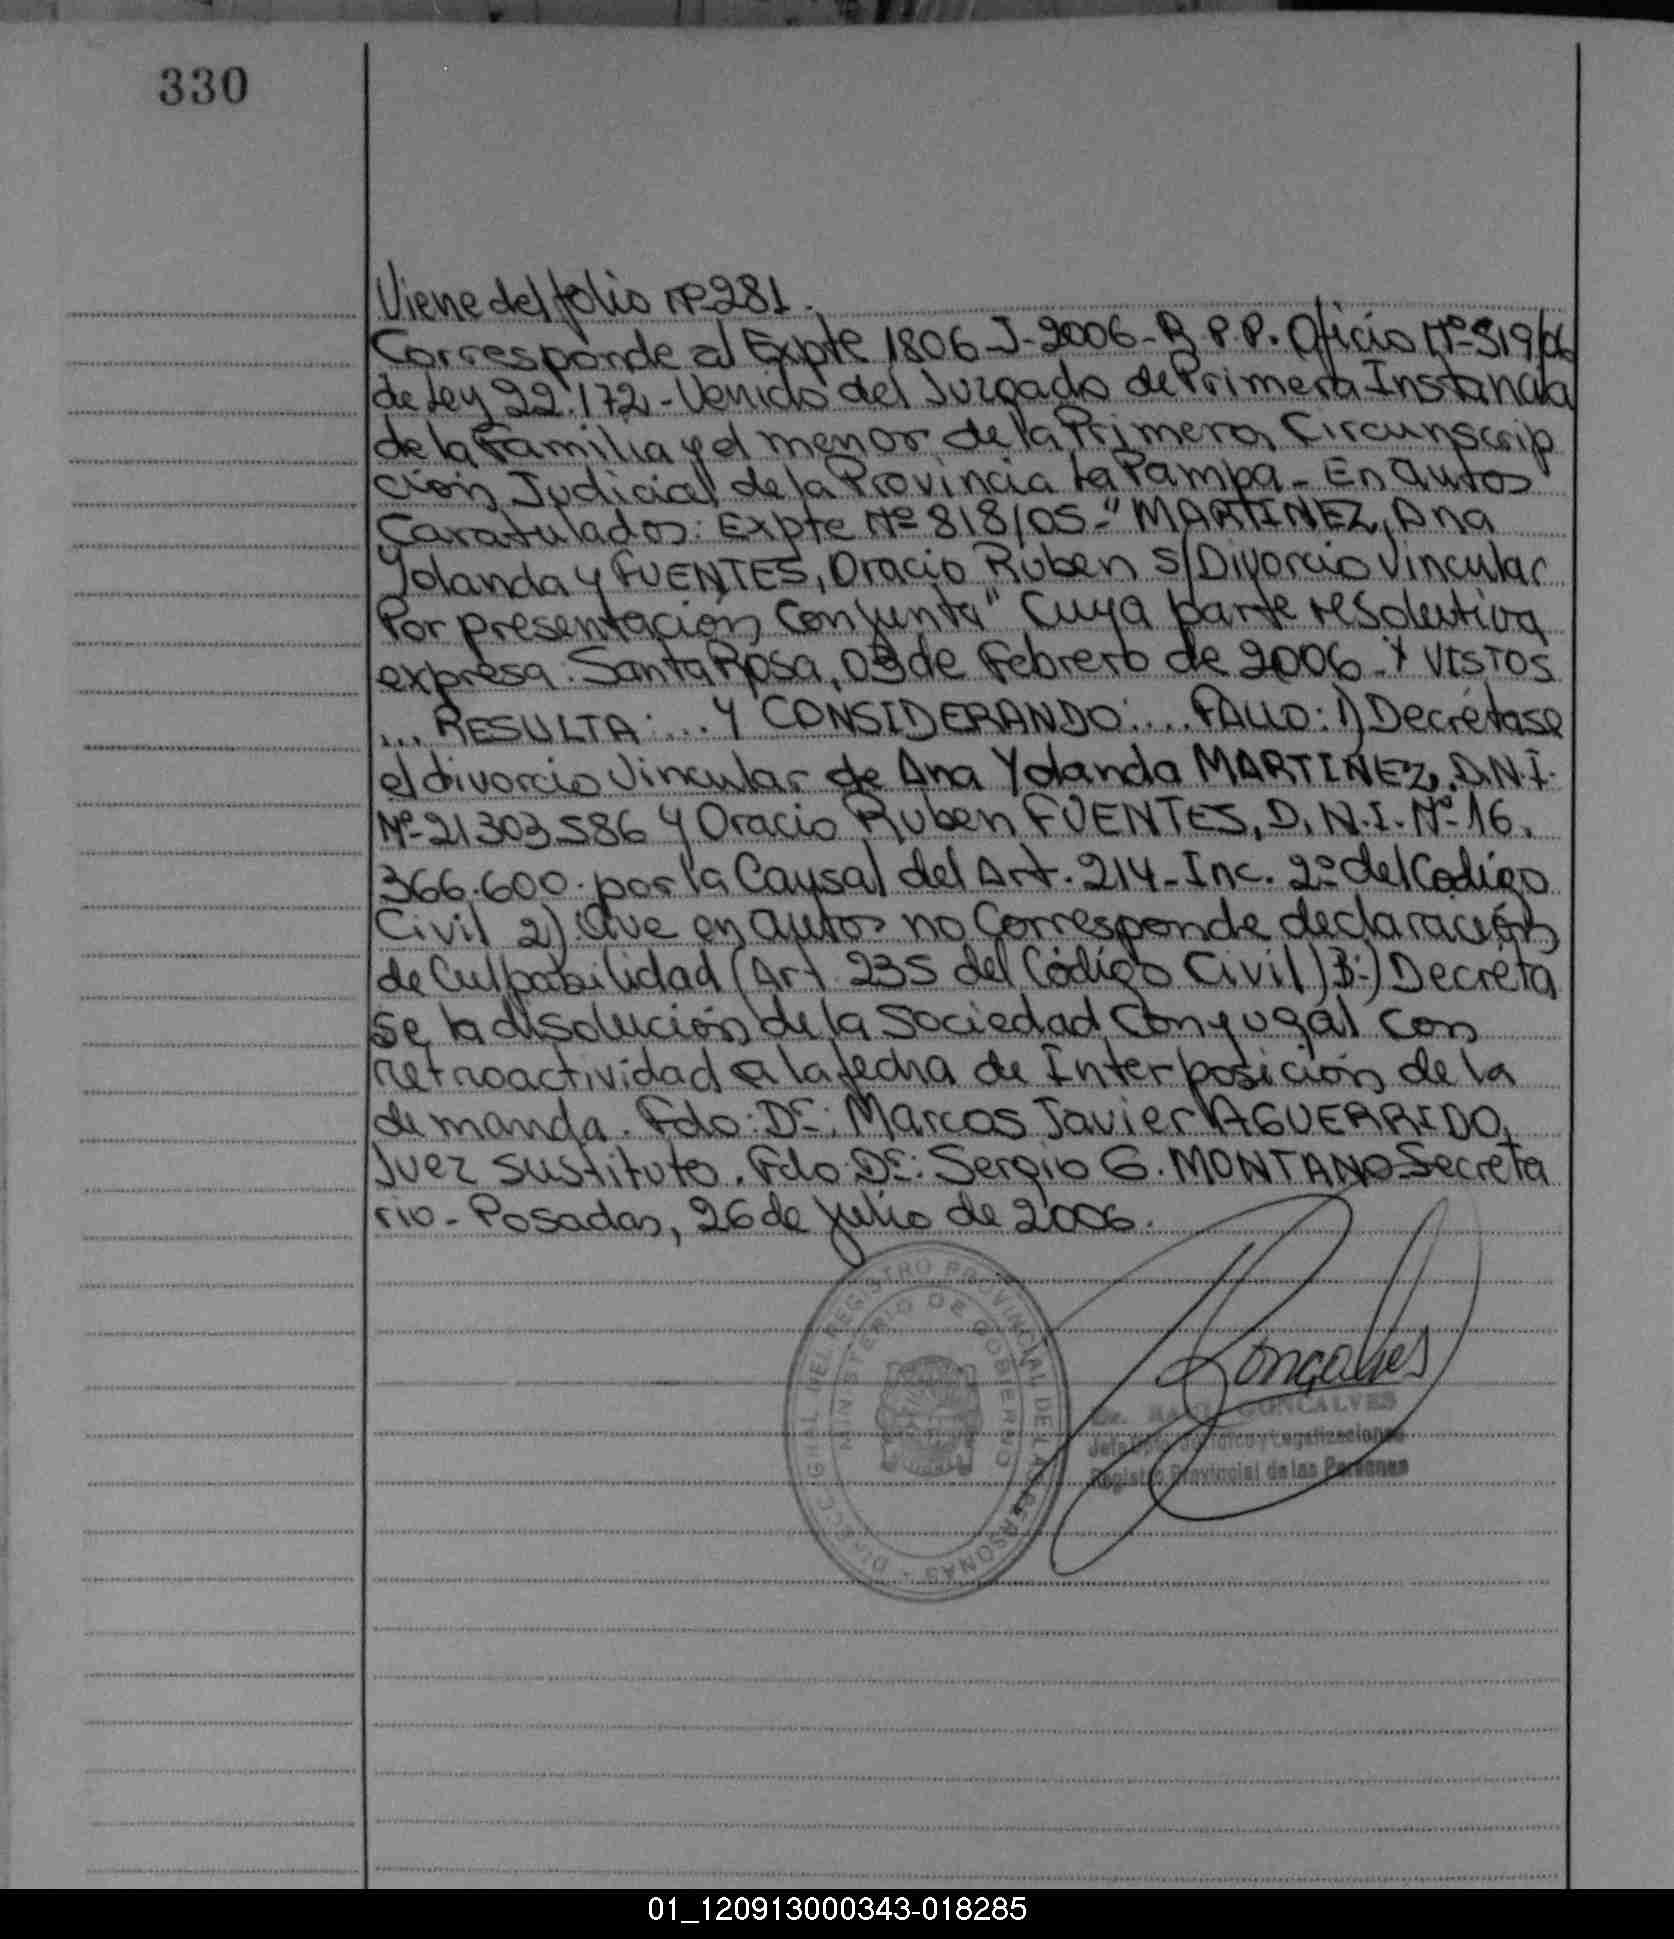 330
Viene del folio nº 281.
Corresponde al Expte 1806-J-2006-R.P.P. Oficio Nº 519/06
de Ley 22.172 - Venido del Juzgado de Primera Instancia
de la Familia y el menor de la Primera Circunscrip
ción Judicial de la Provincia La Pampa - En autos
Caratulados: Expte Nº 818/05 - "MARTINEZ, Ana
Yolanda y FUENTES, Oracio Ruben s/Divorcio Vincular
Por presentación Conjunta" Cuya parte resolutiva
expresa. Santa Rosa, 03 de Febrero de 2006 - Y VISTOS
... RESULTA: ... Y CONSIDERANDO: ... FALLO: 1) Decrétase
el divorcio vincular de Ana Yolanda MARTINEZ, D.N.I.
Nº 21303586 y Oracio Ruben FUENTES, D.N.I. Nº 16.
366.600. por la Causal del Art. 214 - Inc. 2º del Codigo
Civil 2) Que en autos no Corresponde declaración
de Culpabilidad (Art 235 del Código Civil) 3:) Decreta
se la disolución de la Sociedad Conyugal con
retroactividad a la fecha de Interposición de la
demanda. Fdo: Dr: Marcos Javier AGUERRIDO,
Juez Sustituto. Fdo: Dr: Sergio G. MONTANO - Secreta
rio - Posadas, 26 de Julio de 2006.
DIRECC. GRAL. DEL REGISTRO PROVINCIAL DE LAS PERSONAS
MINISTERIO DE GOBIERNO
Goncalves
Dr. RAUL GONCALVES
Jefe Dpto. Jurídico y Legalizaciones
Registro Provincial de las Personas
01_120913000343-018285